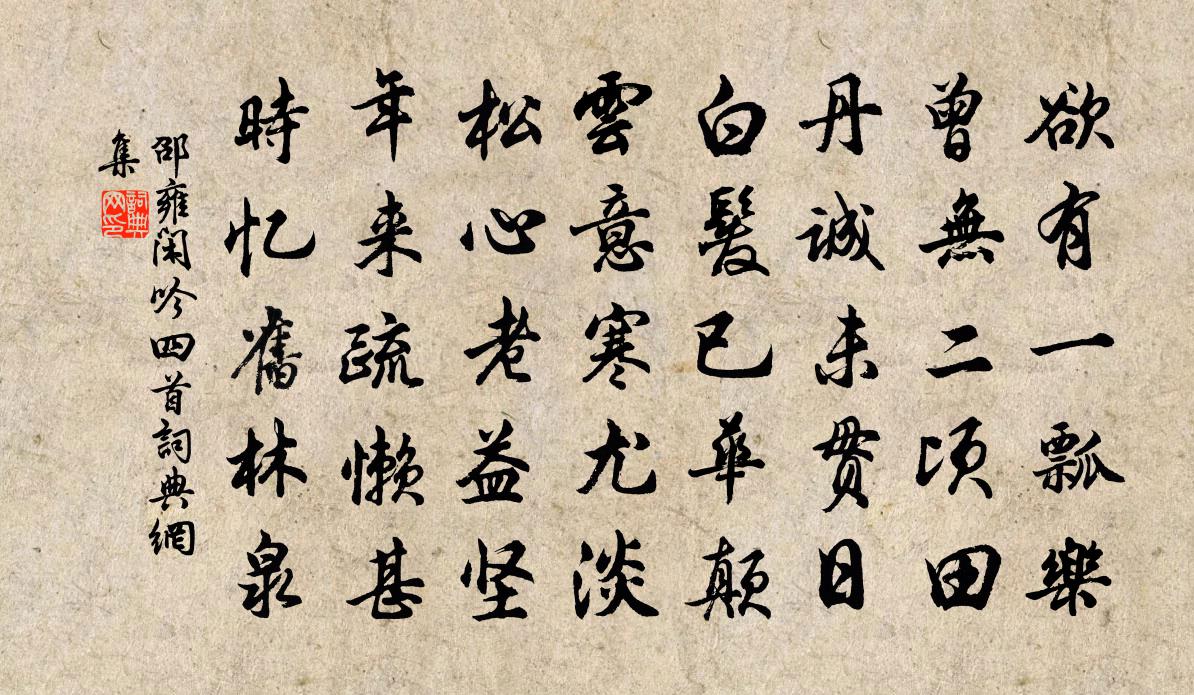 欲有一瓢樂
曾無二頃田
丹誠未贯日
白髮已華顛
雲意寒尤淡
松心老益坚
年来疏懒甚
時忆舊林泉
邵雍閑吟四首詞典網
集
詞典网印